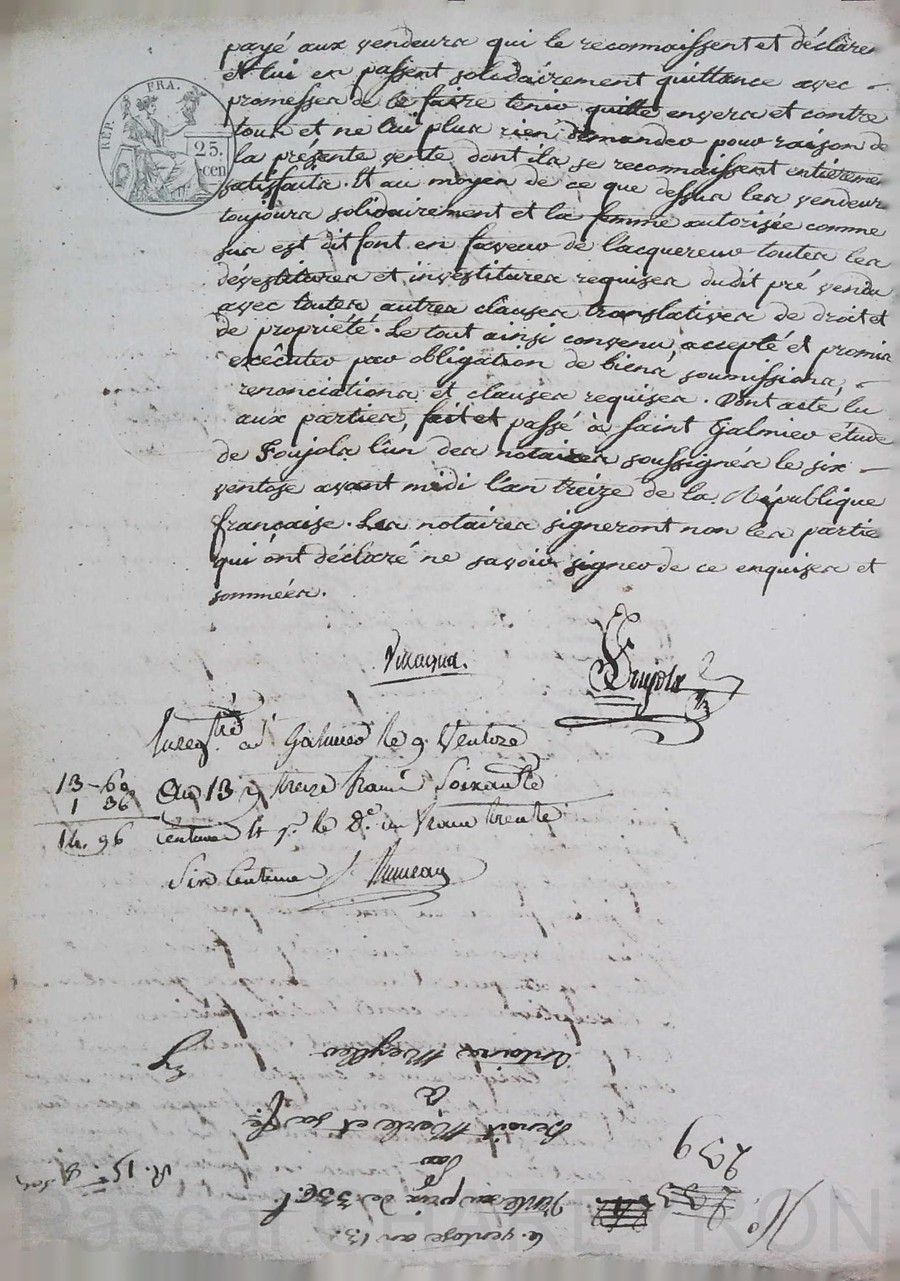 payé aux vendeurs qui le reconnaissent et déclarent
et lui en passent solidairement quittance avec
promesse de le faire tenir quitte envers et contre
tous et ne lui plus rien demander pour raison de
la présente vente dont ils se reconnaissent entièrement
satisfaits. Et au moyen de ce que dessus les vendeurs
toujours solidairement et la femme autorisée comme
sus est dit font en faveur de l'acquereur toutes les
dévestitures et investitures requises dudit pré vendu
avec toutes autres clauses translatives de droit et
de propriété. Le tout ainsi convenu, accepté et promis
exécuter par obligation de biens, soumissions,
renonciations, et clauses requises. Dont acte lu
aux parties, fait et passé à Saint Galmier étude
de Foujols l'un des notaires soussignés le six
ventose avant midi l'an treize de la République
française. Les notaires signeront non les parties
qui ont déclaré ne savoir signer de ce enquises et
sommées.
REP. FRA.
25.
cen
Foujols
Enregtré a St Galmier le 9 Ventose
An 13 treize francs Soixante
Centimes et pr. le De. un franc trente
Six Centimes
13-60
1 36
14. 96
6. ventose an 13.
Vente au prix de 336 f.
Par
Benoit Merle et sa fe.
à
Antoine Meyller
239
Pascal CHAREYRON